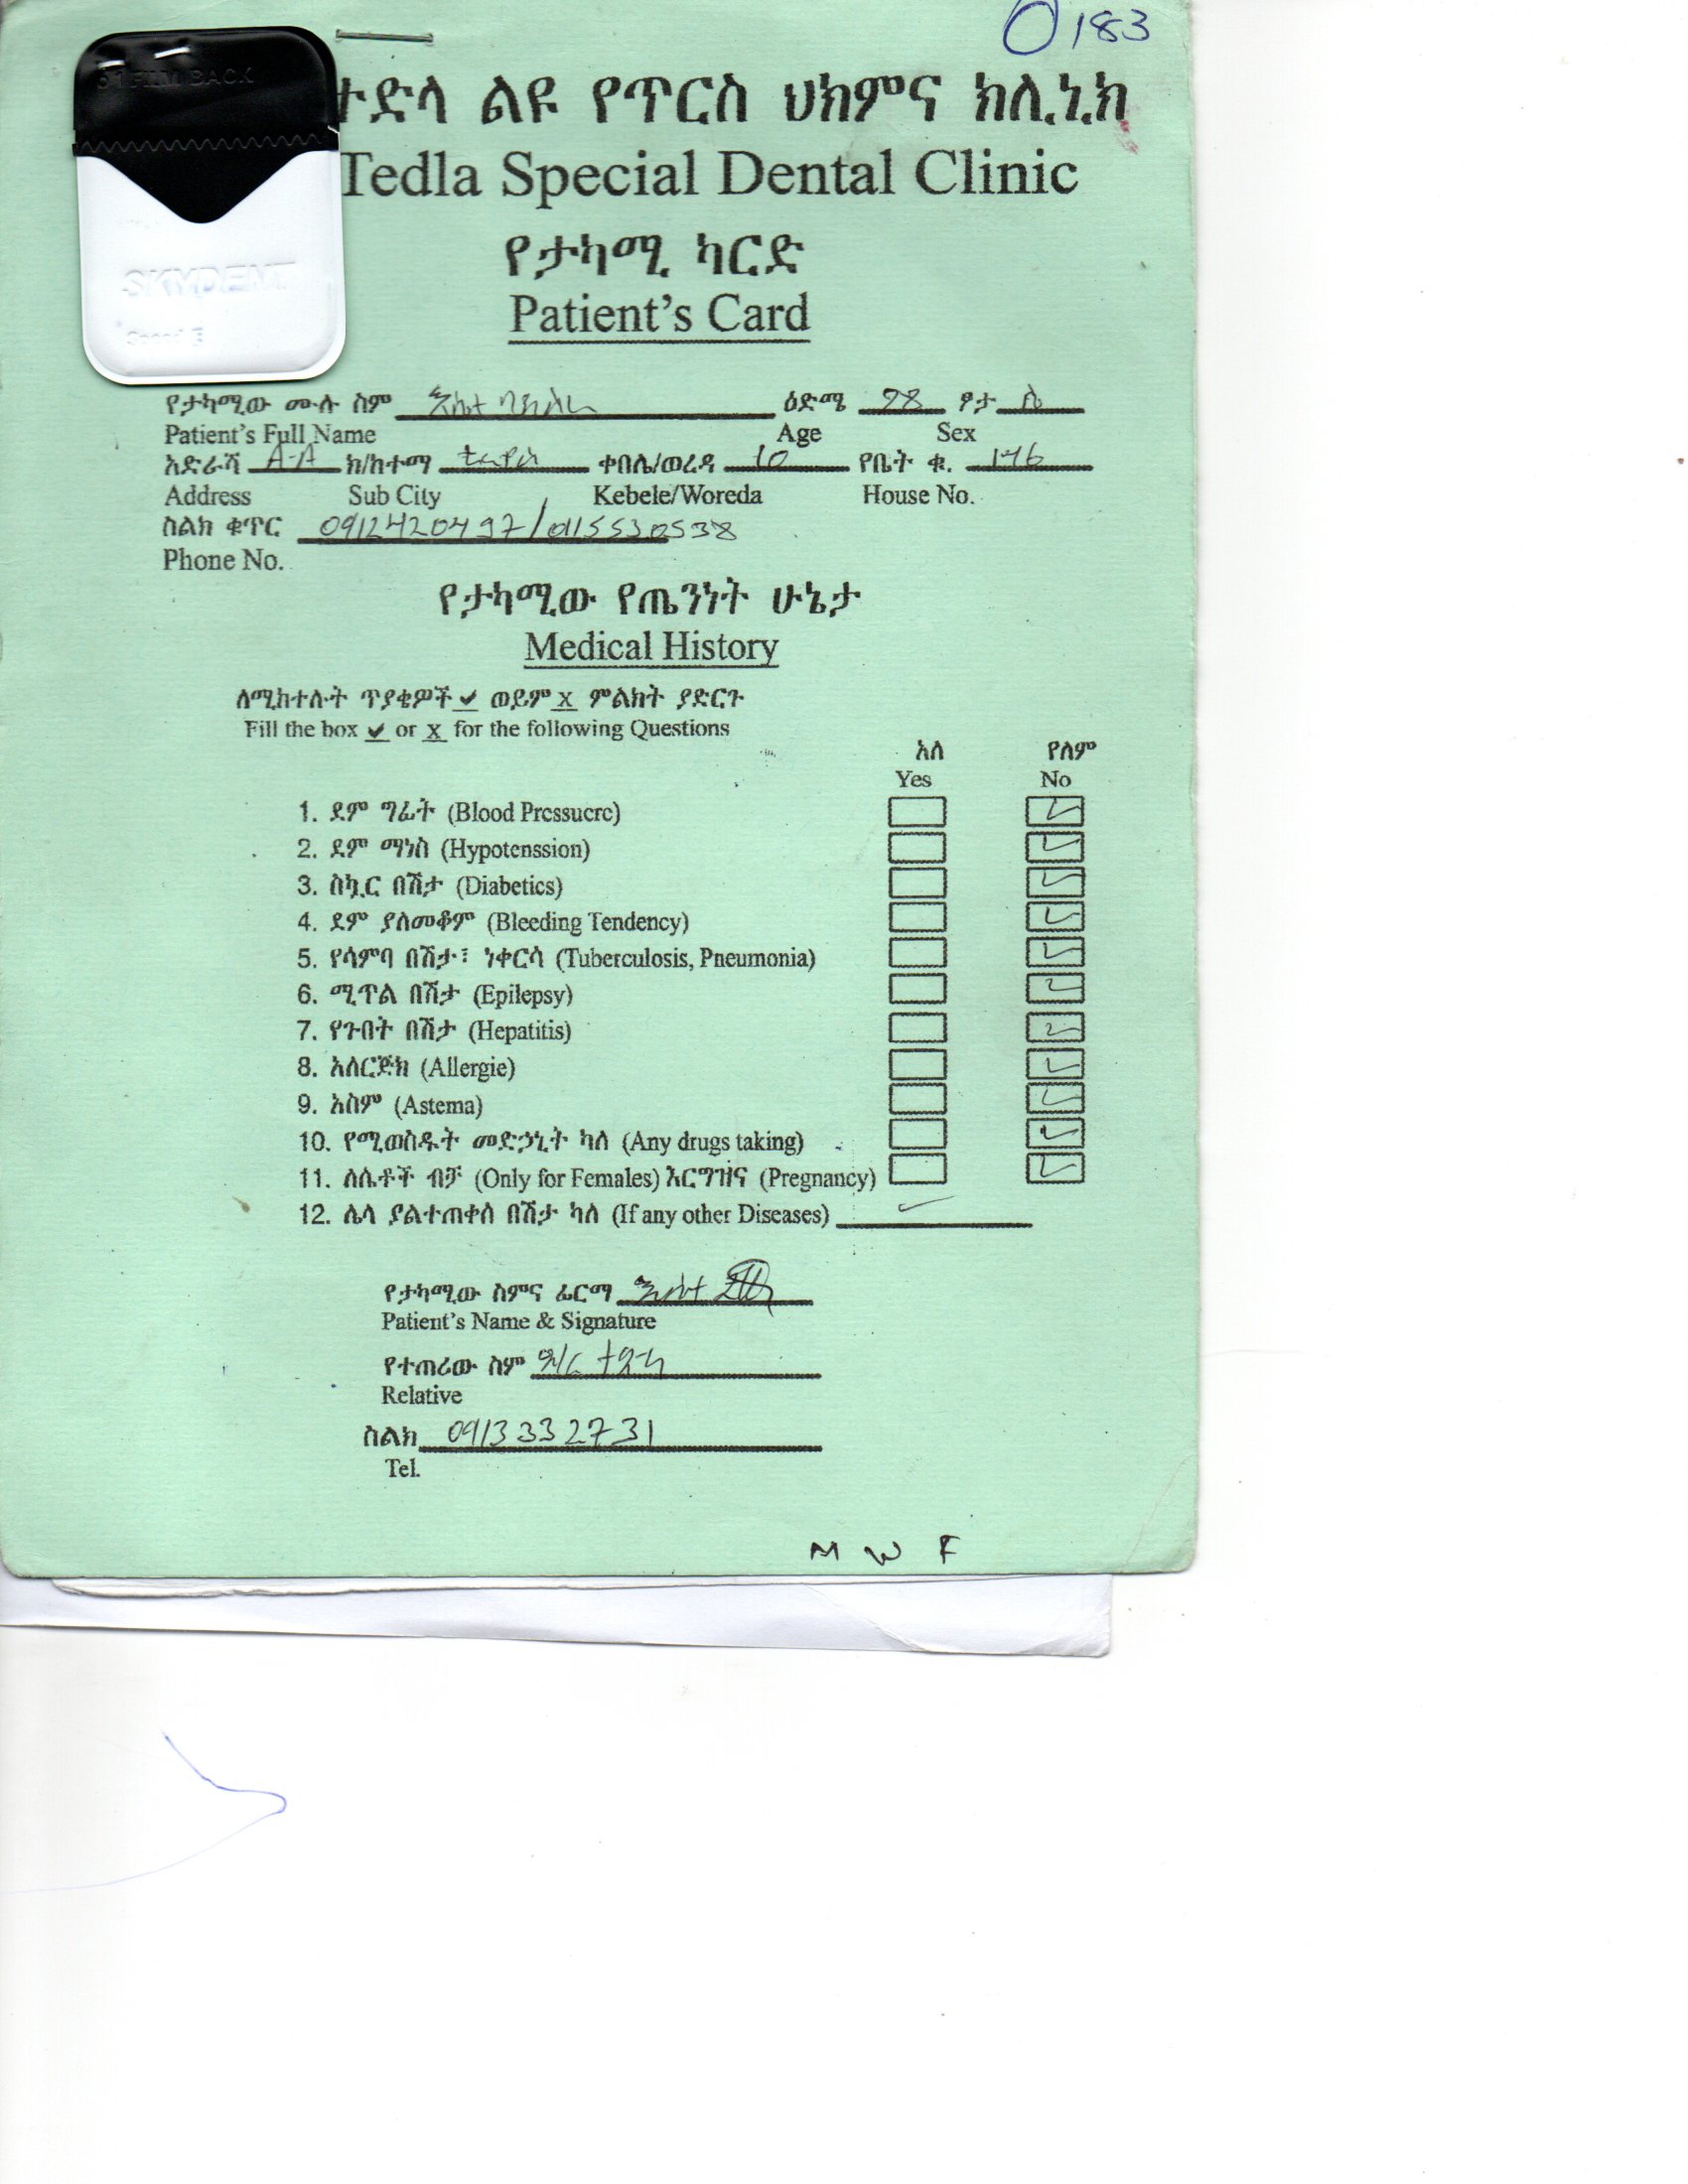 0183
FILM BACK
ተድላ ልዩ የጥርስ ህክምና ክሊኒክ
Tedla Special Dental Clinic
SKYDENT
Speed E
የታካሚ ካርድ
Patient's Card
የታካሚው ሙሉ ስም ዕድሜ 28 ፆታ ሴ
Patient's Full Name Age Sex
አድራሻ A-A ክ/ከተማ ቀበሌ/ወረዳ 10 የቤት ቁ. 146
Address Sub City Kebele/Woreda House No.
ስልክ ቁጥር 0912420497/0115530538
Phone No.
የታካሚው የጤንነት ሁኔታ
Medical History
ለሚከተሉት ጥያቄዎች ✔ ወይም x ምልክት ያድርጉ
Fill the box ✔ or x for the following Questions
አለ የለም
Yes No
1. ደም ግፊት (Blood Pressuere) ✓
2. ደም ማነስ (Hypotenssion) ✓
3. ስኳር በሽታ (Diabetics) ✓
4. ደም ያለመቆም (Bleeding Tendency) ✓
5. የሳምባ በሽታ፣ ነቀርሳ (Tuberculosis, Pneumonia) ✓
6. ሚጥል በሽታ (Epilepsy) ✓
7. የጉበት በሽታ (Hepatitis) ✓
8. አለርጅክ (Allergie) ✓
9. አስም (Astema) ✓
10. የሚወስዱት መድኃኒት ካለ (Any drugs taking) ✓
11. ለሴቶች ብቻ (Only for Females) እርግዝና (Pregnancy) ✓
12. ሌላ ያልተጠቀሰ በሽታ ካለ (If any other Diseases) ✓
የታካሚው ስምና ፊርማ
Patient's Name & Signature
የተጠሪው ስም
Relative
ስልክ 0913332731
Tel.
M W F